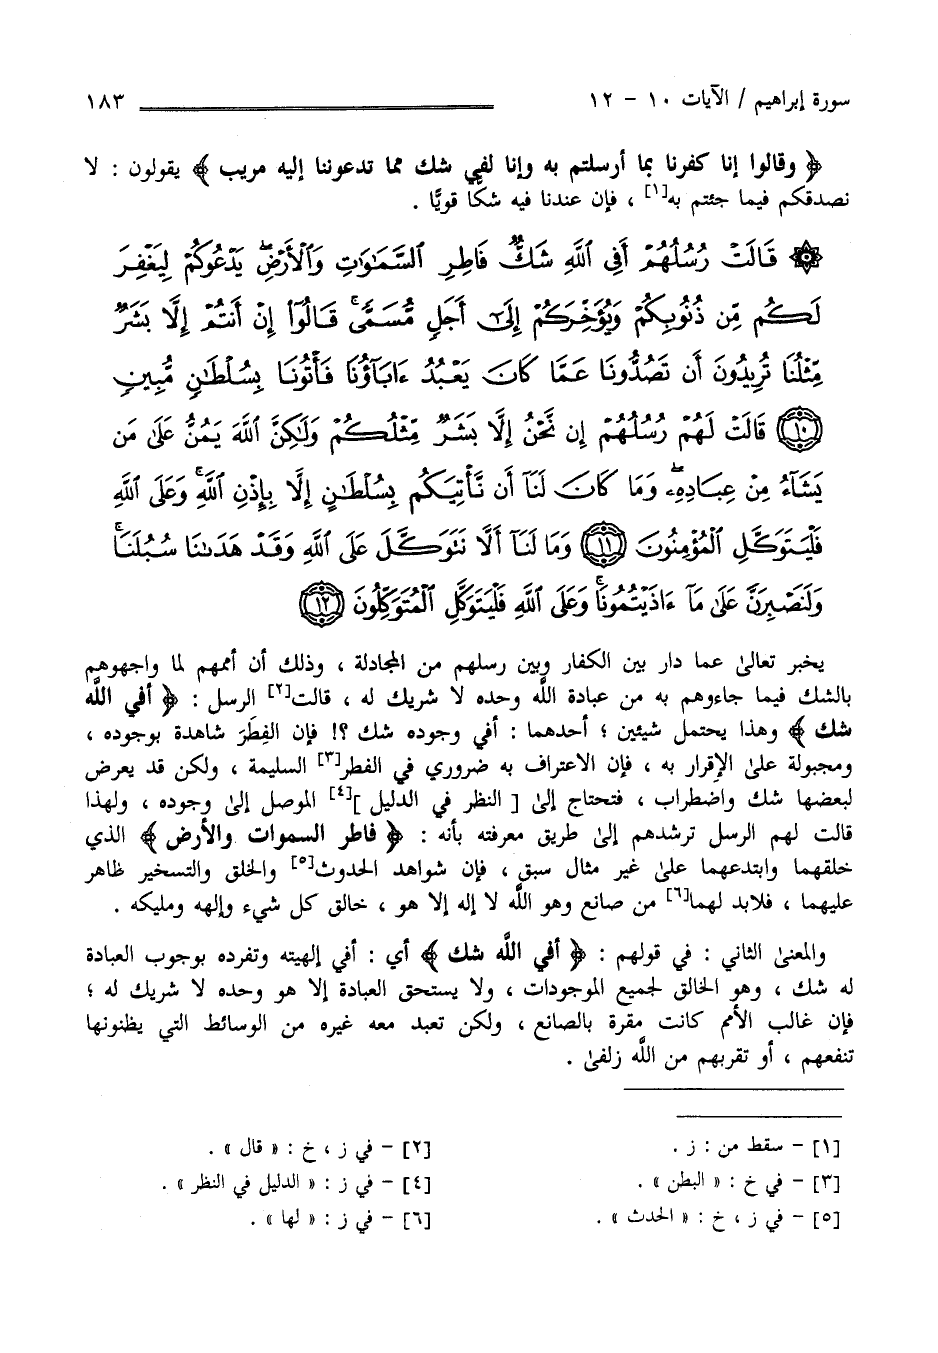 سورة إبراهيم / الآيات ١٠ - ١٢ ١٨٣
﴿ وقالوا إنا كفرنا بما أرسلتم به وإنا لفي شك مما تدعوننا إليه مريب ﴾ يقولون : لا
نصدقكم فيما جئتم به[١] ، فإن عندنا فيه شكًّا قويًّا .
۞ قَالَتْ رُسُلُهُمْ أَفِي ٱللَّهِ شَكٌّ فَاطِرِ ٱلسَّمَٰوَٰتِ وَٱلْأَرْضِ ۖ يَدْعُوكُمْ لِيَغْفِرَ
لَكُم مِّن ذُنُوبِكُمْ وَيُؤَخِّرَكُمْ إِلَىٰٓ أَجَلٍ مُّسَمًّى ۚ قَالُوٓا۟ إِنْ أَنتُمْ إِلَّا بَشَرٌ
مِّثْلُنَا تُرِيدُونَ أَن تَصُدُّونَا عَمَّا كَانَ يَعْبُدُ ءَابَآؤُنَا فَأْتُونَا بِسُلْطَٰنٍ مُّبِينٍ
﴿١٠﴾ قَالَتْ لَهُمْ رُسُلُهُمْ إِن نَّحْنُ إِلَّا بَشَرٌ مِّثْلُكُمْ وَلَٰكِنَّ ٱللَّهَ يَمُنُّ عَلَىٰ مَن
يَشَآءُ مِنْ عِبَادِهِۦ ۖ وَمَا كَانَ لَنَآ أَن نَّأْتِيَكُم بِسُلْطَٰنٍ إِلَّا بِإِذْنِ ٱللَّهِ ۚ وَعَلَى ٱللَّهِ
فَلْيَتَوَكَّلِ ٱلْمُؤْمِنُونَ ﴿١١﴾ وَمَا لَنَآ أَلَّا نَتَوَكَّلَ عَلَى ٱللَّهِ وَقَدْ هَدَىٰنَا سُبُلَنَا ۚ
وَلَنَصْبِرَنَّ عَلَىٰ مَآ ءَاذَيْتُمُونَا ۚ وَعَلَى ٱللَّهِ فَلْيَتَوَكَّلِ ٱلْمُتَوَكِّلُونَ ﴿١٢﴾
يخبر تعالىٰ عما دار بين الكفار وبين رسلهم من المجادلة ، وذلك أن أممهم لما واجهوهم
بالشك فيما جاءوهم به من عبادة اللَّه وحده لا شريك له ، قالت[٢] الرسل : ﴿ أفي اللَّه
شك ﴾ وهذا يحتمل شيئين ؛ أحدهما : أفي وجوده شك ؟! فإن الفِطَرَ شاهدة بوجوده ،
ومجبولة علىٰ الإقرار به ، فإن الاعتراف به ضروري في الفطر[٣] السليمة ، ولكن قد يعرض
لبعضها شك واضطراب ، فتحتاج إلىٰ [ النظر في الدليل ][٤] الموصل إلىٰ وجوده ، ولهذا
قالت لهم الرسل ترشدهم إلىٰ طريق معرفته بأنه : ﴿ فاطر السموات والأرض ﴾ الذي
خلقهما وابتدعهما علىٰ غير مثال سبق ، فإن شواهد الحدوث[٥] والخلق والتسخير ظاهر
عليهما ، فلابد لهما[٦] من صانع وهو اللَّه لا إله إلا هو ، خالق كل شيء وإلهه ومليكه .
والمعنىٰ الثاني : في قولهم : ﴿ أفي اللَّه شك ﴾ أي : أفي إلهيته وتفرده بوجوب العبادة
له شك ، وهو الخالق لجميع الموجودات ، ولا يستحق العبادة إلا هو وحده لا شريك له ؛
فإن غالب الأمم كانت مقرة بالصانع ، ولكن تعبد معه غيره من الوسائط التي يظنونها
تنفعهم ، أو تقربهم من اللَّه زلفىٰ .
[١] - سقط من : ز . [٢] - في ز ، خ : « قال » .
[٣] - في خ : « البطن » . [٤] - في ز : « الدليل في النظر » .
[٥] - في ز ، خ : « الحدث » . [٦] - في ز : « لها » .